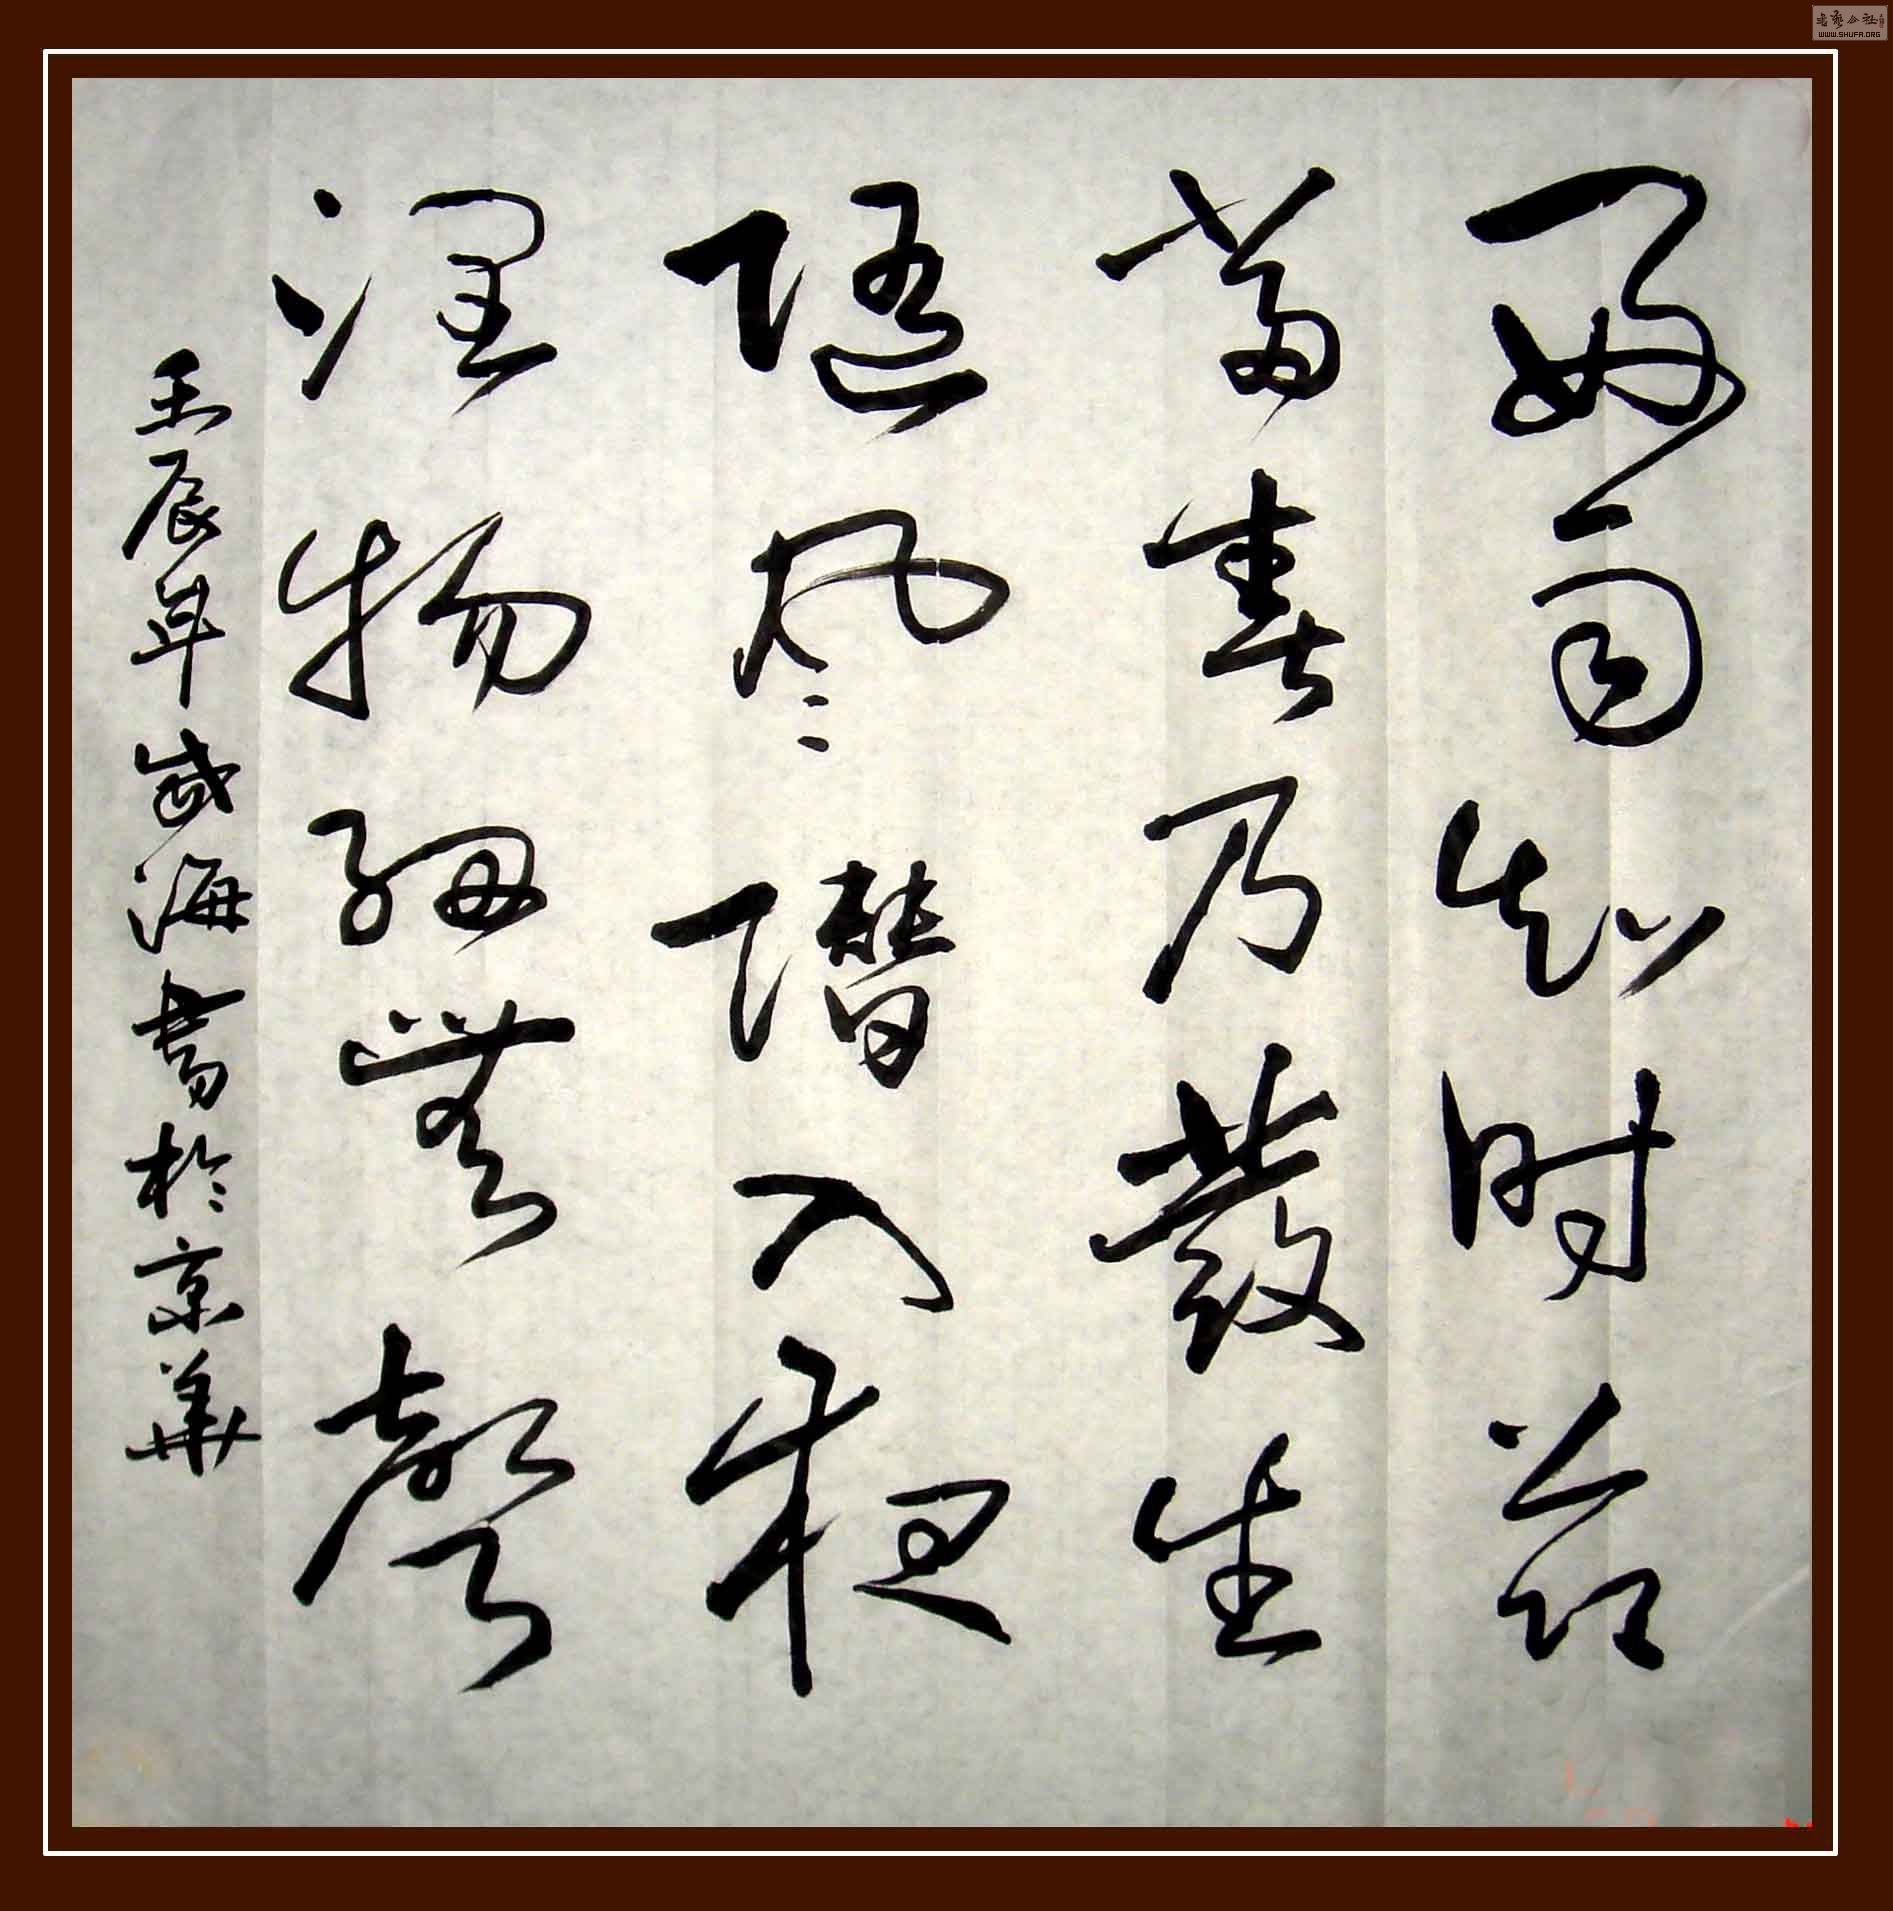 好雨知时節
當春乃發生
隨风潛入夜
潤物細無聲
壬辰年海書於京華
书艺公社
WWW.SHUFA.ORG